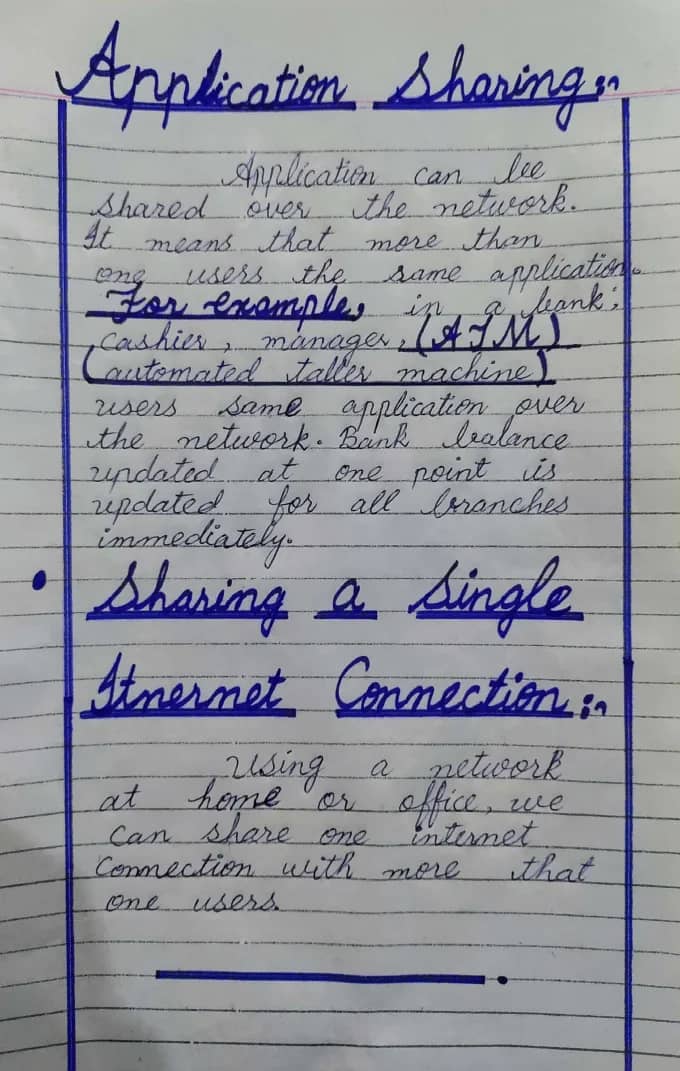 Application Sharing:-
Application can be
shared over the network.
It means that more than
one users the same application.
For example, in a bank;
cashier, manager, (ATM)
(automated taller machine)
users same application over
the network. Bank balance
updated at one point is
updated for all branches
immediately.
• Sharing a Single
Itnernet Connection:-
Using a network
at home or office, we
can share one internet
Connection with more that
one users.